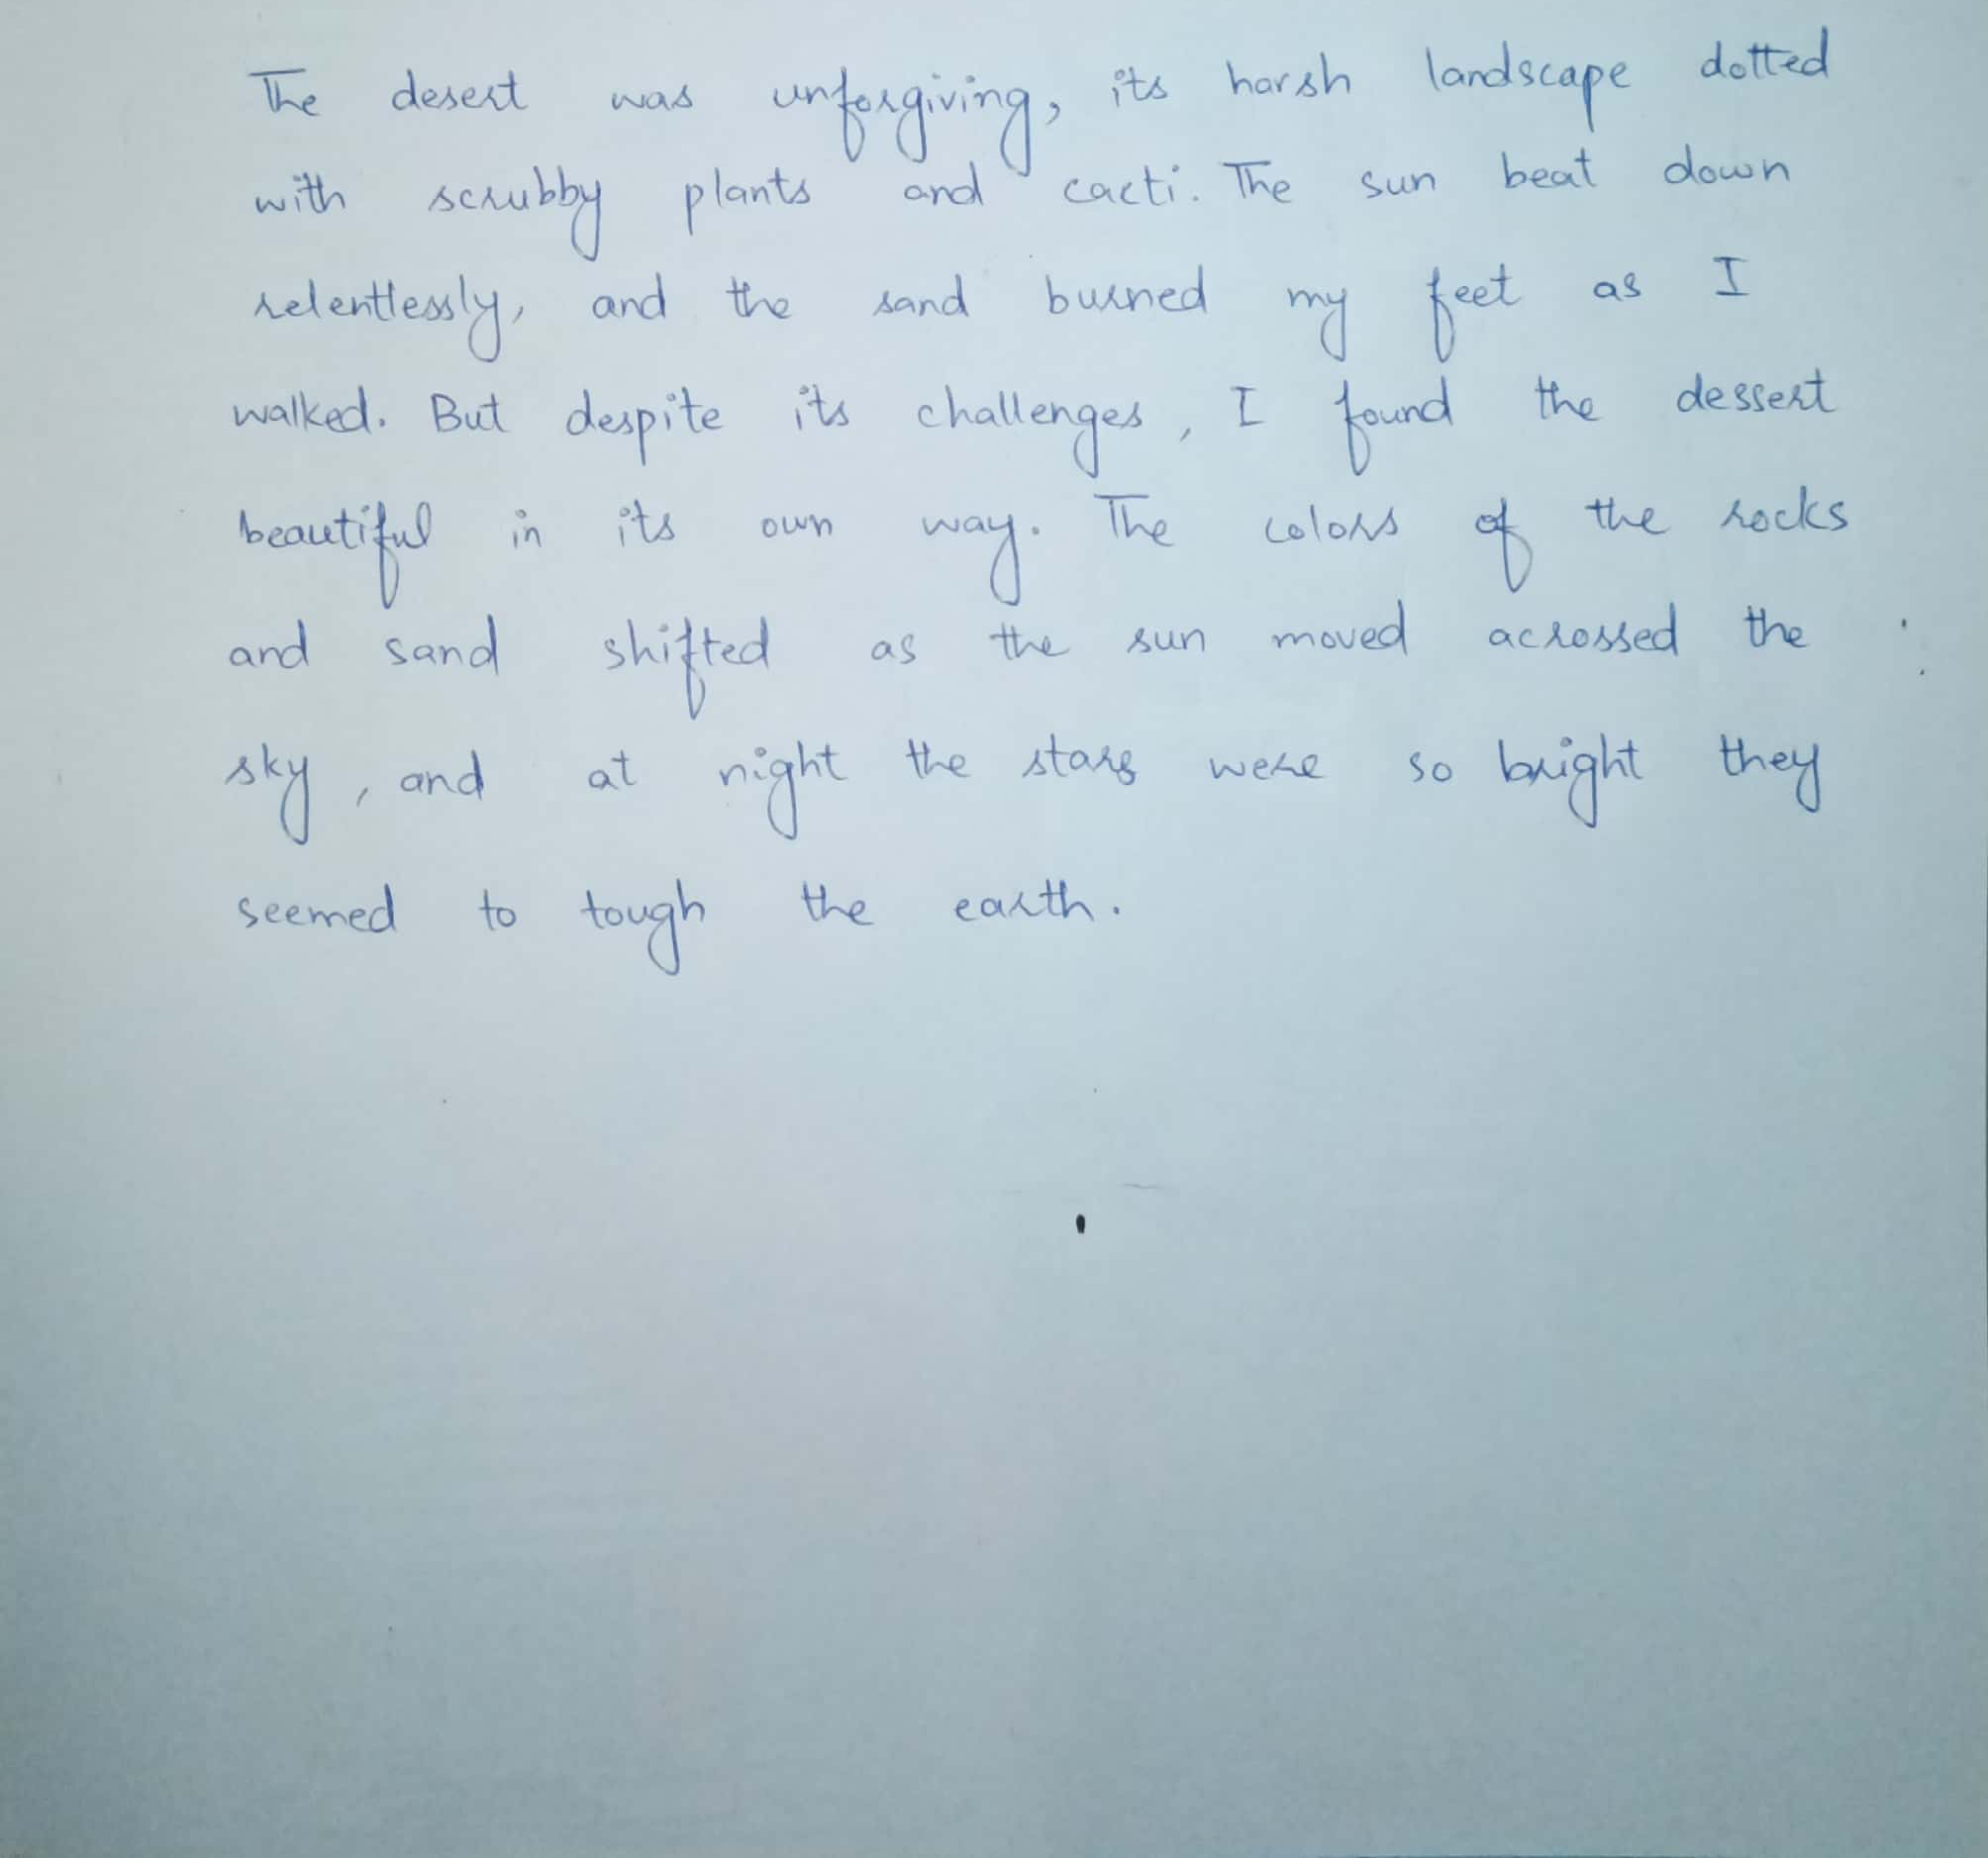 The desert was unforgiving, its harsh landscape dotted
with scrubby plants and cacti. The sun beat down
relentlessly, and the sand burned my feet as I
walked. But despite its challenges, I found the dessert
beautiful in its own way. The colors of the rocks
and sand shifted as the sun moved acrossed the
sky, and at night the stars were so bright they
seemed to tough the earth.